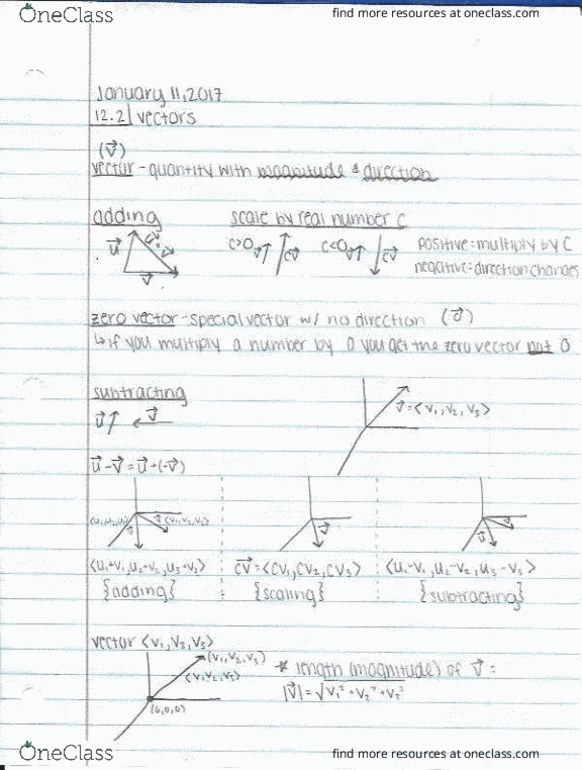 OneClass find more resources at oneclass.com
January 11, 2017
12.2 vectors
(v⃗)
vector - quantity with magnitude & direction
adding scale by real number c
u⃗ v⃗ c>0 v⃗ cv⃗ c<0 v⃗ cv⃗ positive = multiply by c
negative = direction changes
zero vector - special vector w/ no direction (0⃗)
↳ if you multiply a number by 0 you get the zero vector not 0
subtracting
u⃗ v⃗
v⃗ = <v₁, v₂, v₃>
u⃗ - v⃗ = u⃗ + (-v⃗)
<u₁+v₁, u₂+v₂, u₃+v₃> cv⃗ = <cv₁, cv₂, cv₃> <u₁-v₁, u₂-v₂, u₃-v₃>
{adding} {scaling} {subtracting}
vector <v₁, v₂, v₃>
(v₁, v₂, v₃)
<v₁, v₂, v₃>
(0,0,0)
* length (magnitude) of v⃗ :
|v⃗| = √v₁² + v₂² + v₃²
OneClass find more resources at oneclass.com